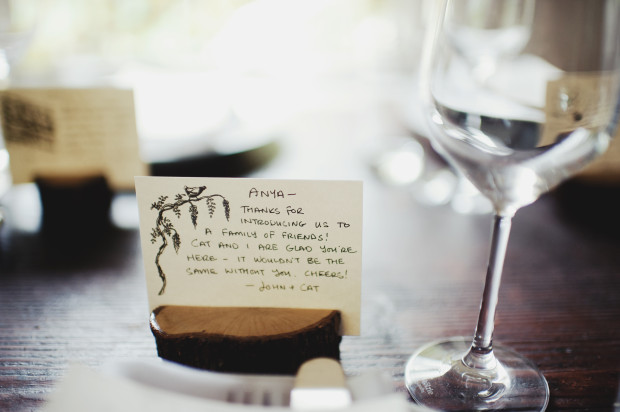 ANYA-
THANKS FOR
INTRODUCING US TO
A FAMILY OF FRIENDS!
CAT AND I ARE GLAD YOU'RE
HERE - IT WOULDN'T BE THE
SAME WITHOUT YOU. CHEERS!
- JOHN + CAT